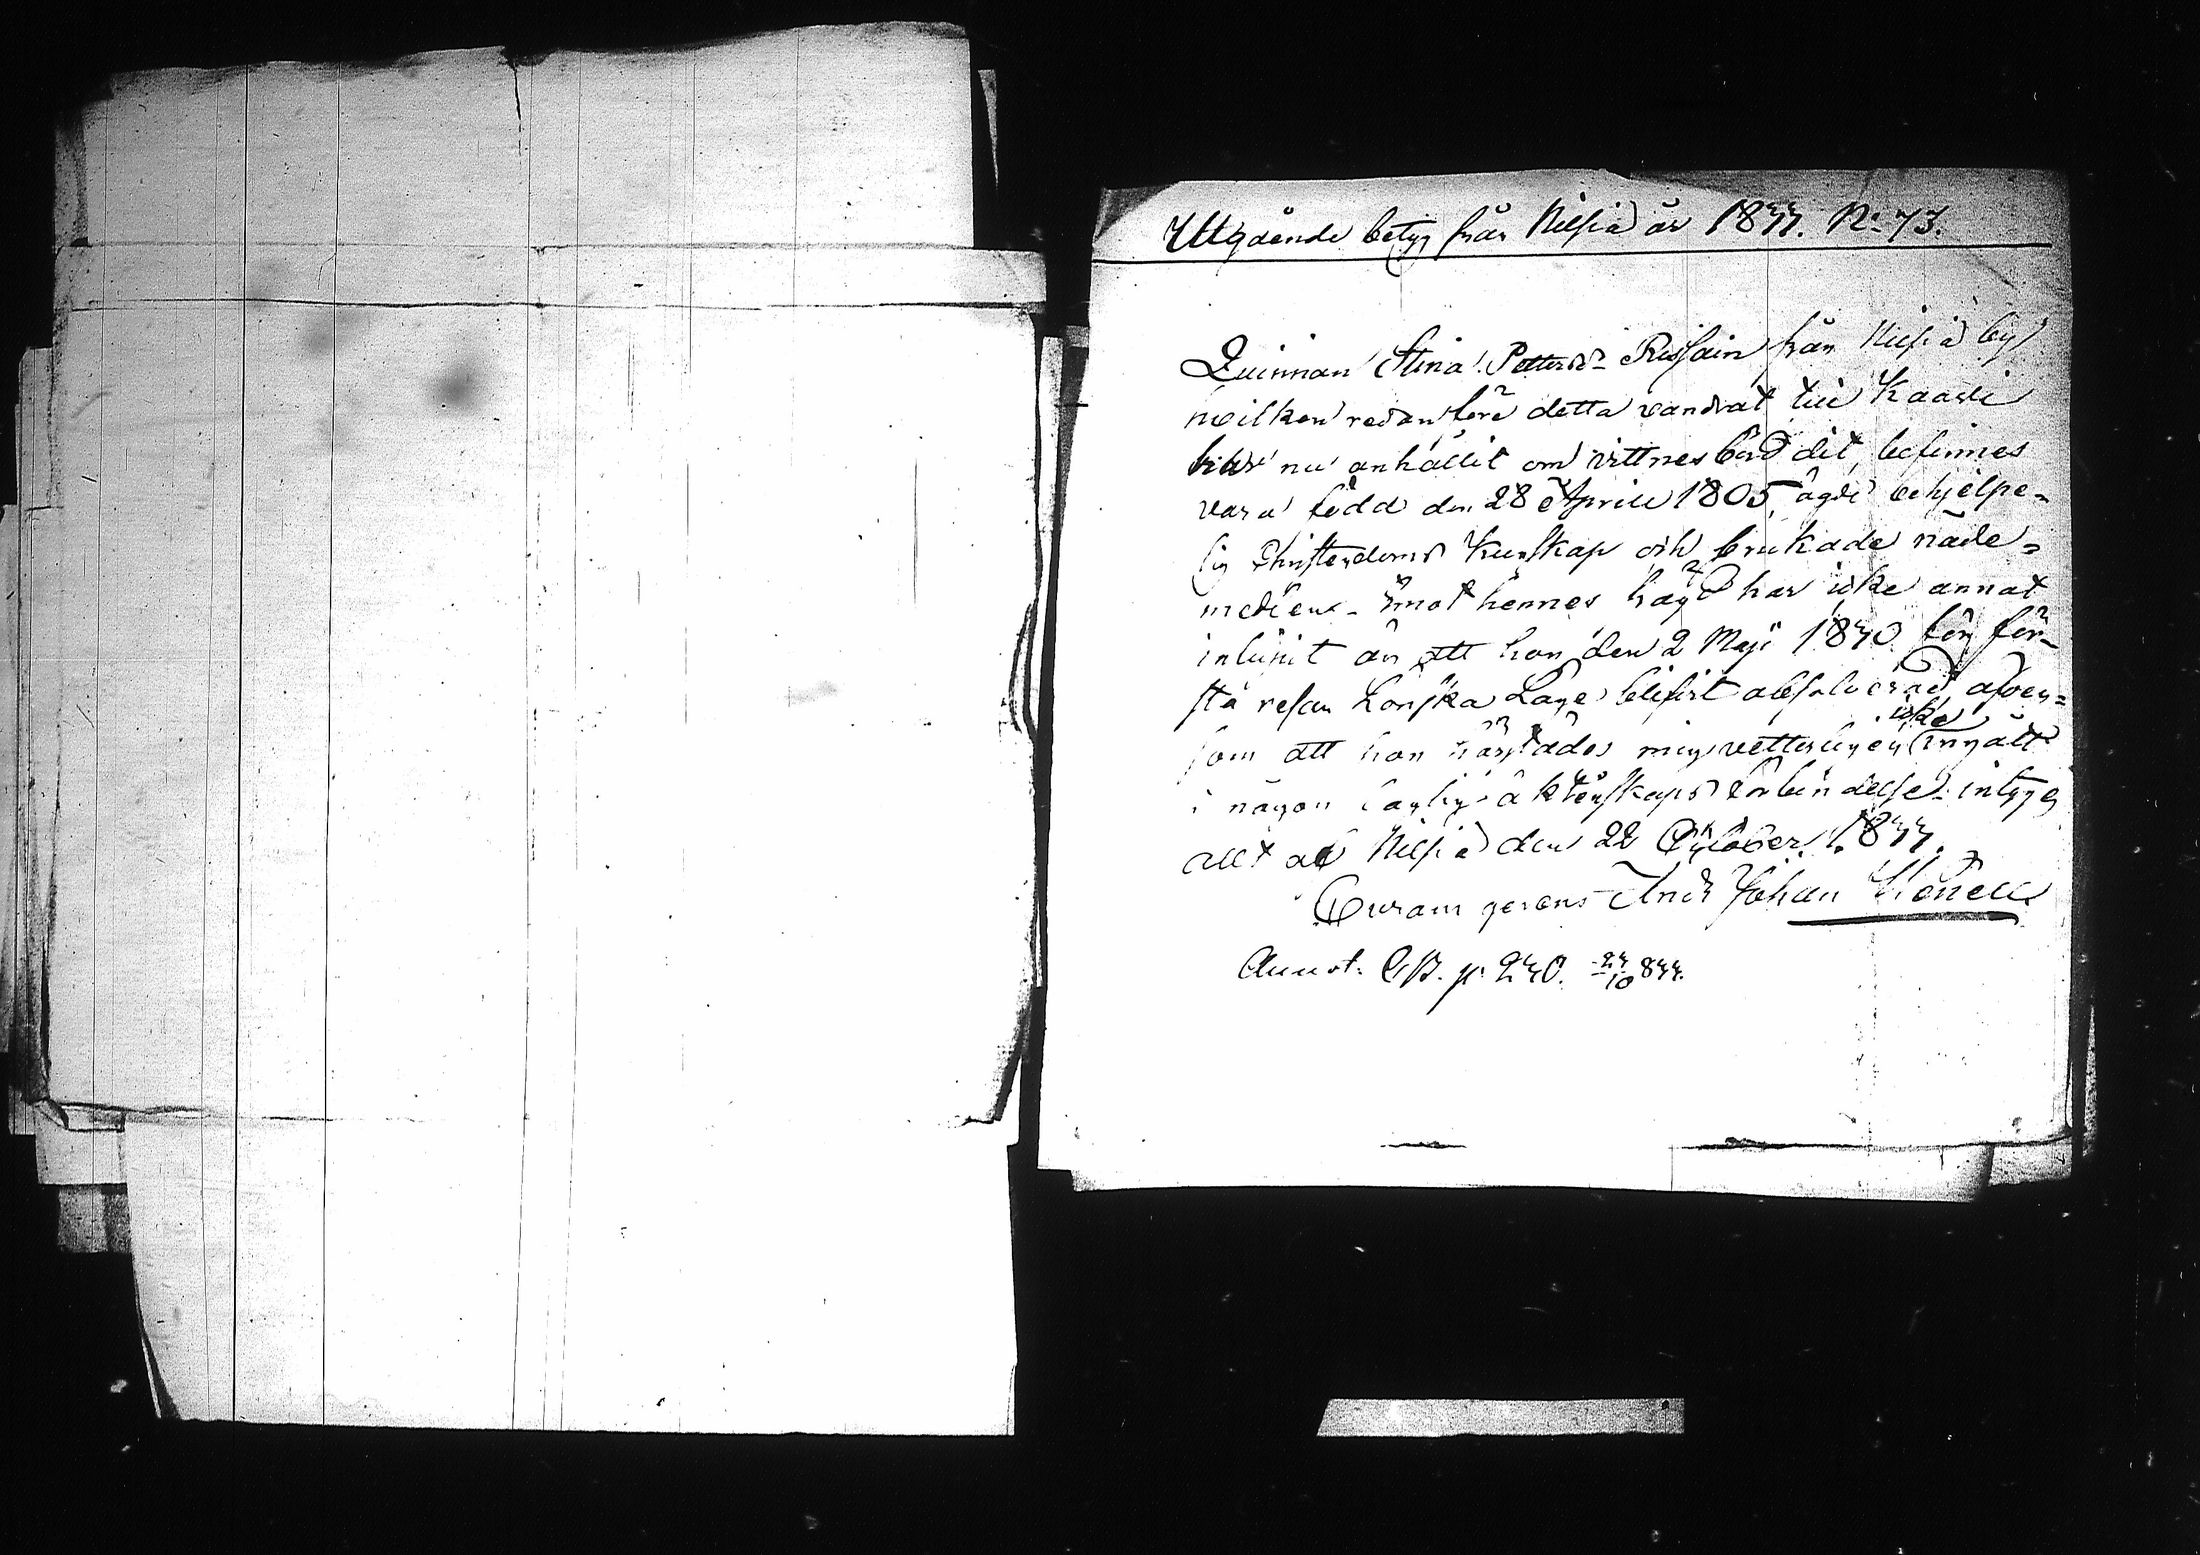 Utgående betyg från Nilsiä år 1844. No 73.
Quinnan Stina Pettersdr Rissain från Nilsiä by
hvilken redan före detta vandrat till Kaavi
har nu anhållit om vittnesbörd dit, befinnes
vara född den 28 Aprill 1805, ägde behjelpe-
lig Christendoms kunskap och brukade nåde-
medlen. Emot hennes frägd har icke annat
inlupit än att hon den 2 Maji 1840 för för-
sta resan Lönska Läge blifvit absolverad, äfven-
som att hon härstädes mig vetterligen icke ingått
i någon laglig äktenskaps förbindelse. intygas
allt af Nilsiä den 22 October 1844.
Curam gerens And Johan
Annot. CB. p. 240. 24/10 844.